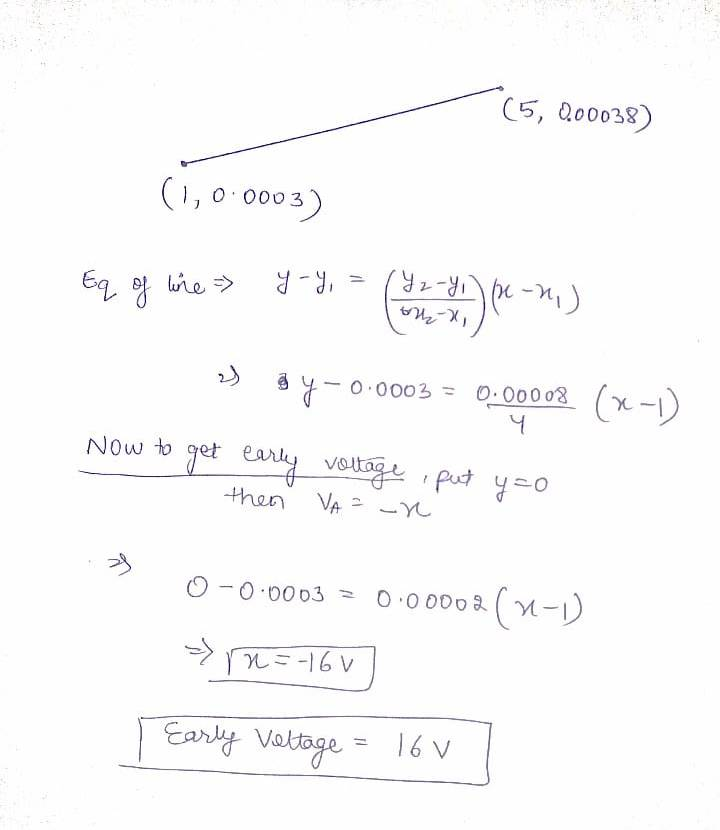 (5, 0.00038)
(1, 0.0003)
Eq of line ⇒ y - y₁ = (y₂-y₁/x₂-x₁)(x - x₁)
⇒ y - 0.0003 = 0.00008/4 (x-1)
Now to get early voltage, put y=0
then V_A = -x
⇒
0 - 0.0003 = 0.00002(x-1)
⇒ x = -16 V
Early Voltage = 16 V